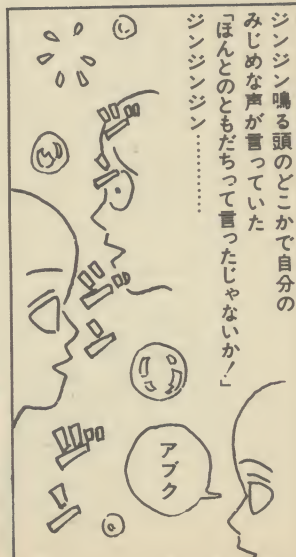 ジンジン鳴る頭のどこかで自分の
みじめな声が言っていた
「ほんとのともだちって言ったじゃないか！」
ジンジンジン…………
アブク